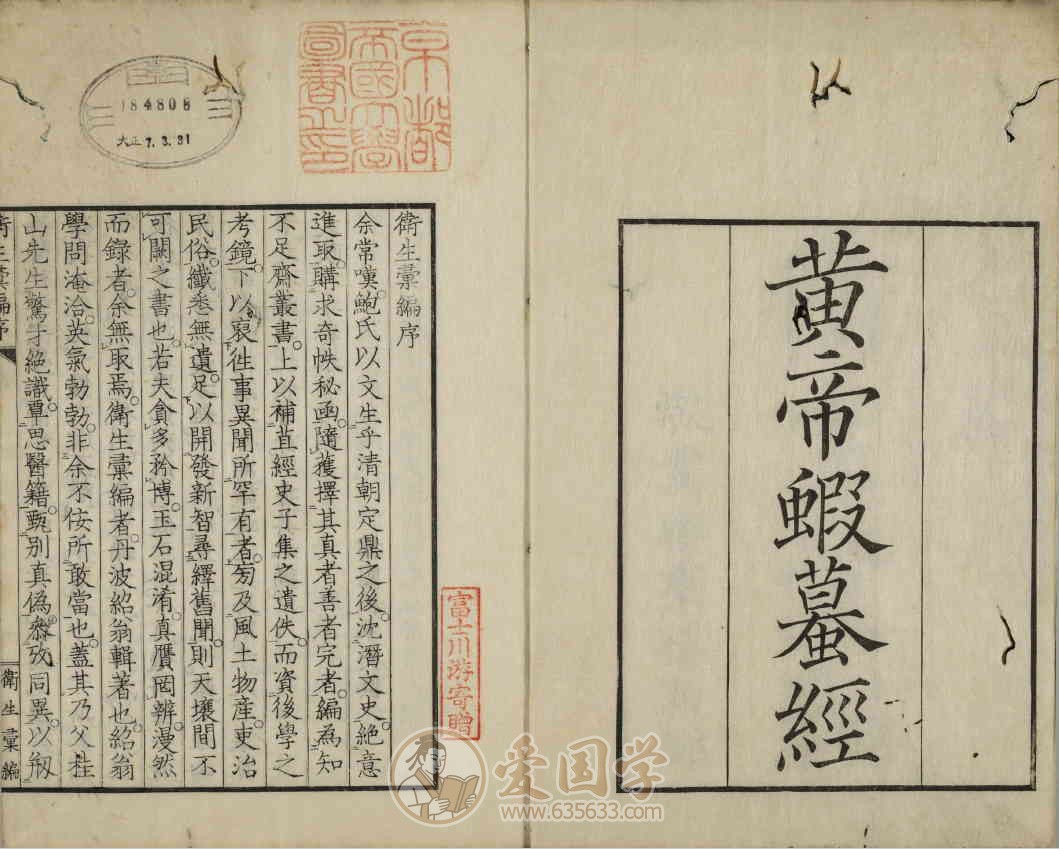 黄帝蝦蟇經
京都
帝國大學
圖書之印
184808
大正7.3.31
衛生彙編序
余常嘆鮑氏以文生乎清朝定鼎之後。沈潛文史。絶意
進取。購求奇帙秘函。隨獲擇其真者善者完者。編為知
不足齋叢書。上以補苴經史子集之遺佚。而資後學之
考鏡。下以裒往事異聞所罕有者。旁及風土物産。吏治
民俗。纖悉無遺。足以開發新智。尋繹舊聞。則天壤間不
可闕之書也。若夫貪多矜博。玉石混淆。真贋罔辨。漫然
而錄者。余無取焉。衛生彙編者。丹波紹翁輯著也。紹翁
學問淹洽。英氣勃勃。非余不侫所敢當也。蓋其乃父桂
山先生驚才絶識。覃思醫籍。甄別真偽。叅攷同異。以剏
衛生彙編序
衛生彙編
富士川游寄贈
爱国学
www.635633.com